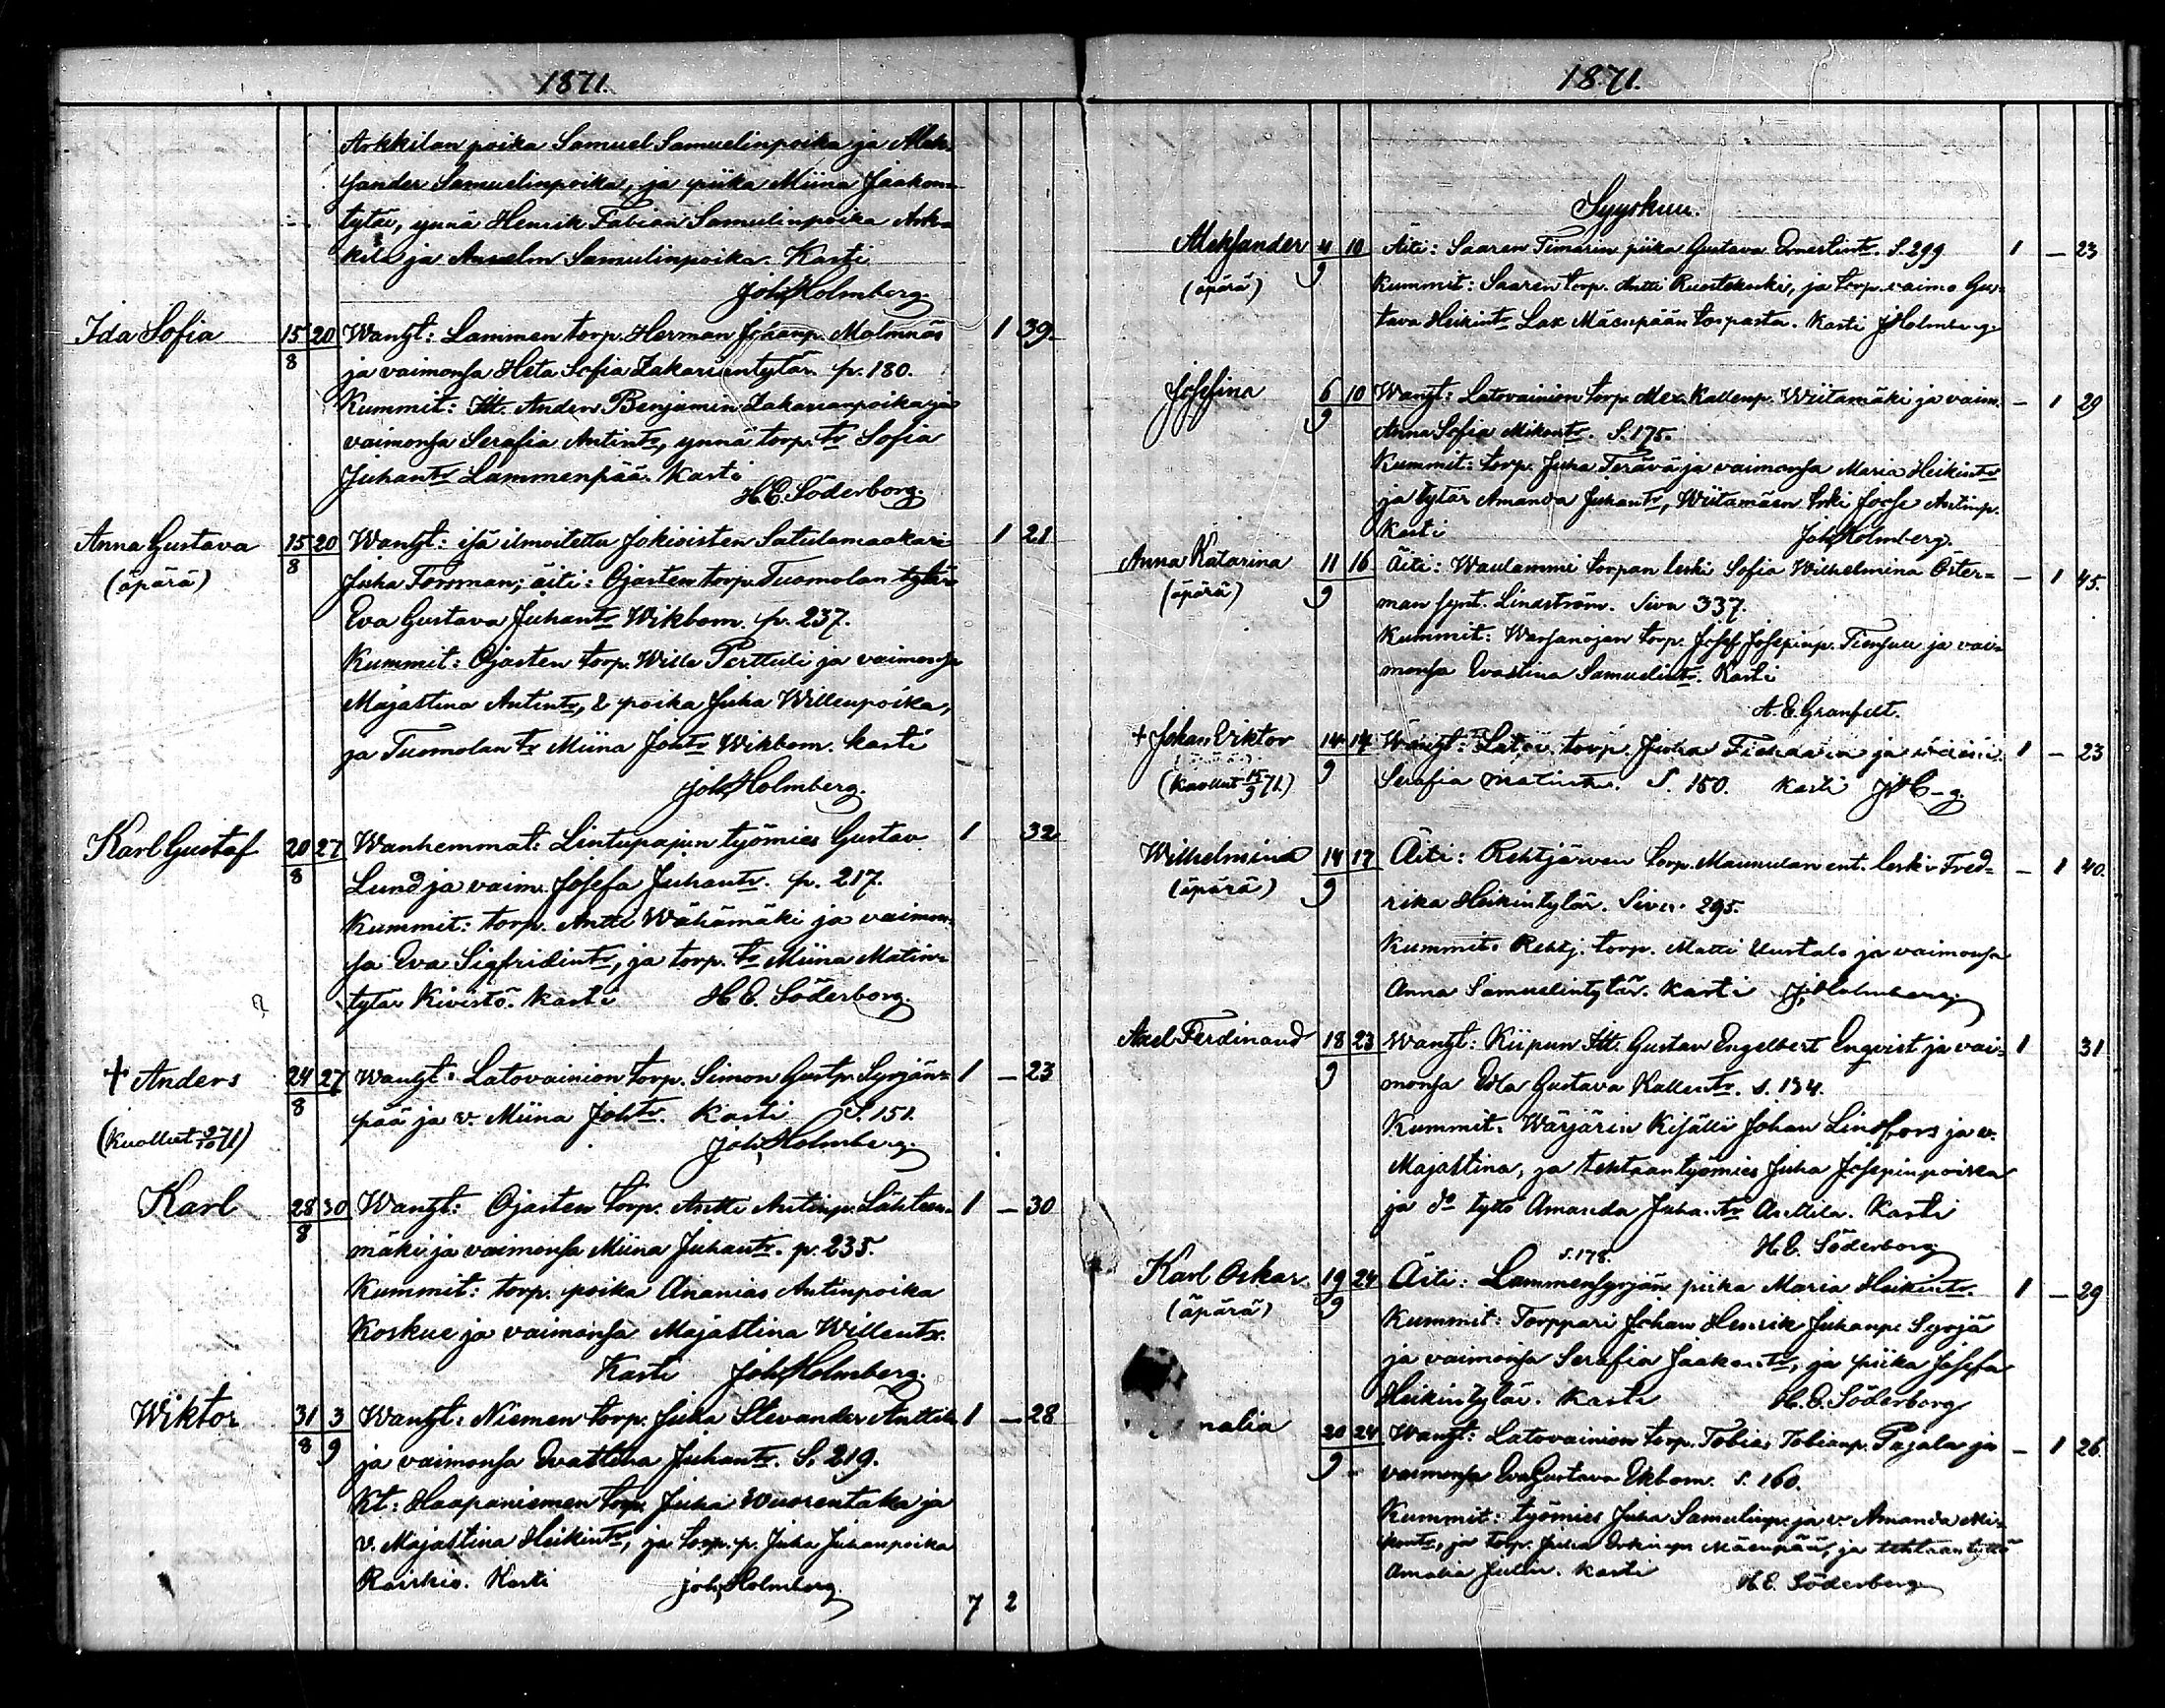 1871.
Arkkilan poika Samuel Samuelinpoika ja Alek-
sander Samuelinpoika, ja piika Miina Jaakon-
tytär, ynnä Henrik Fabian Samulinpoika Ark-
kila ja Anselm Samulinpoika. Kasti
Joh. Holmberg.
Ida Sofia 15/8 20 Wanht: Lammen torp. Herman Juhanp. Malmnäs 1 39.
ja vaimonsa Heta Sofia Zakariantytär. p. 180.
Kummit: Itt. Anders Benjamin Zakarianpoika ja
vaimonsa Serafia Antintr, ynnä torp. tr Sofia
Juhantr Lammenpää. Kasti
H.E. Söderborg.
Anna Gustava 15/8 20 Wanht: isä ilmoitettu Jokioisten Satulamaakari 1 21
(äpärä) Juha Forsman; äiti: Ojasten torp. Tuomolan tytär
Eva Gustava Juhantr Wikbom. p. 237.
Kummit: Ojasten torp. Wille Perttuli ja vaimonsa
Majastina Antintr, & poika Juha Willenpoika,
ja Tuomolan tr Miina Johtr Wikbom. kasti
Joh. Holmberg.
Karl Gustaf 20/8 27 Wanhemmat: Lintupajun työmies Gustav 1 32
Lund ja vaim. Josefa Juhantr. p. 217.
Kummit: torp. Antti Wähämäki ja vaimon-
sa Eva Sigfridintr, ja torp. tr Miina Matin-
tytär Kivistö. kasti H.E. Söderborg.
+ Anders 24/8 27 Wanht: Latovainion torp. Simon Gustp. Syrjän- 1 — 23
pää ja v. Miina Johtr. Kasti S. 151.
(Kuollut 27/10 71) Joh. Holmberg.
Karl 28/8 30 Wanht: Ojasten torp. Antti Antinp. Lähteen- 1 — 30
mäki ja vaimonsa Miina Juhantr. p. 235.
Kummit: torp. poika Ananias Antinpoika
Koskue ja vaimonsa Majastina Willentr.
Kasti Joh. Holmberg.
Wiktor 31/8 3/9 Wanht: Niemen torp. Juha Stevander Anttila 1 — 28
ja vaimonsa Evastina Juhantr. S. 219.
Kt: Haapaniemen torp. Juha Wuorentaka ja
v. Majastina Heikintr, ja torp. p. Juha Juhanpoika
Kasti Joh. Holmberg.
7 2
1871.
Syyskuu.
Aleksander 4/9 10 Äiti: Saaren piika Gustava Ernestintr. S. 299 1 — 23
(äpärä) Kummit: Saaren torp. Antti Ruostekoski, ja torp. vaimo Gus-
tava Heikintr Lax Mäenpään torpasta. Kasti J Holmberg
Josefina 6/9 10 Wanht: Latovainion torp. Alex. Kallenp. Wiitamäki ja vaim. — 1 29
Anna Sofia Mikontr. S. 175.
Kummit: torp. Juha Terävä ja vaimonsa Maria Heikintr
ja tytär Amanda Juhantr, Wiitamäen leski Josse Antinp.
Kasti Joh. Holmberg.
Anna Katarina 11/9 16 Äiti: Waulammi torpan leski Sofia Wilhelmina Öster- — 1 45.
(äpärä) man synt. Lindström. Sivu 337.
Kummit: Warsanojan torp. Josef Josepinp. ja vai-
monsa Evastina Samuelintr. Kasti
A. E. Granfelt.
+ Johan Viktor 14/9 14 Wanht: Latov. torp. Juha ja vaim. 1 — 23
(Kuollut 15/9 71) Serafia Matintr. S. 150. Kasti JH—g.
Wilhelmina 14/9 17 Äiti: Rehtijärven torp. Maunulan ent. leski Fred- — 1 40.
(äpärä) rika Heikintytär. Sivu 295.
Kummit: Rehtj. torp. Matti Uustalo ja vaimonsa
Anna Samuelintytär. Kasti J. Holmberg.
Axel Ferdinand 18/9 23 Wanht: Kiipun Itt. Gustav Engelbert Enqvist ja vai- 1 31
monsa Edla Gustava Kallentr. s. 134.
Kummit: Wärjärin Kisälli Johan Lindfors ja v.
Majastina, ja tehtaan työmies Juha Josepinpoika
ja do tyttö Amanda Juhantr Anttila. Kasti
H.E. Söderborg
S. 178.
Karl Oskar 19/9 24 Äiti: Lammensyrjän piika Maria Heikintr. 1 — 29
(äpärä) Kummit: Torppari Johan Henrik Juhanp. Syrjä
ja vaimonsa Serafia Jaakontr, ja piika Josefa
Heikintytär. Kasti H.E. Söderborg
malia 20/9 24 Wanht: Latovainion torp. Tobias Tobianp. Pajala ja — 1 26.
vaimonsa Eva Gustava Ekbom. S. 160.
Kummit: työmies Juha Samulinp. ja v. Amanda Mi-
kontr, ja torp. Juha Mäenpää, ja tehtaan tyttö
Amalia Julin. kasti H.E. Söderborg